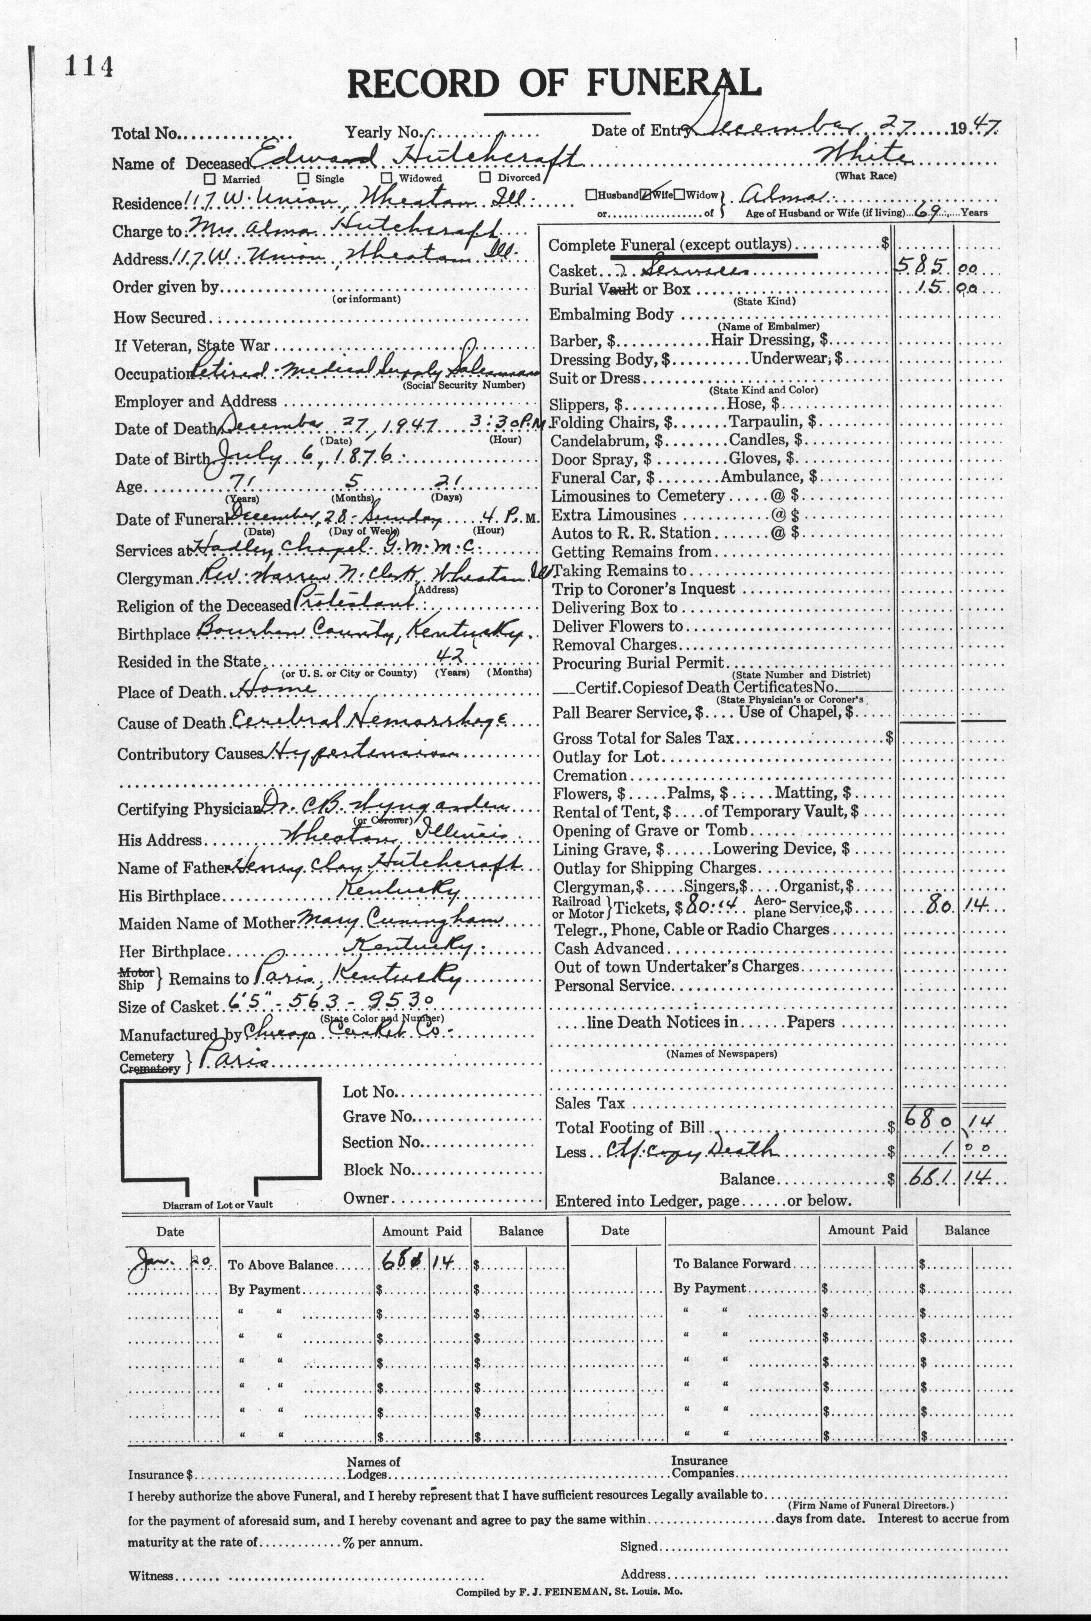 114
RECORD OF FUNERAL
Total No. Yearly No. Date of Entry December 27 1947
Name of Deceased Edward Hutchcraft White
☐ Married ☐ Single ☐ Widowed ☐ Divorced (What Race)
Residence 117 W. Union, Wheaton Ill.
☐Husband ☑Wife ☐Widow } Alma
or of Age of Husband or Wife (if living) 69 Years
Charge to Mrs Alma Hutchcraft
Address 117 W. Union, Wheaton Ill.
Order given by
(or informant)
How Secured
If Veteran, State War
Occupation Retired - Medical Supply Salesman
(Social Security Number)
Employer and Address
Date of Death December 27, 1947 3:30 P.M.
(Date) (Hour)
Date of Birth July 6, 1876
Age 71 5 21
(Years) (Months) (Days)
Date of Funeral December, 28 - Sunday 4. P. M.
(Date) (Day of Week) (Hour)
Services at Hadley Chapel - G.M.M.C.
Clergyman Rev. Warren N. Clark, Wheaton Ill
(Address)
Religion of the Deceased Protestant
Birthplace Bourbon County, Kentucky.
Resided in the State 42
(or U. S. or City or County) (Years) (Months)
Place of Death Home
Cause of Death Cerebral Hemorrhage
Contributory Causes Hypertension
Certifying Physician Dr. C.B. Wyngarden
(or Coroner)
His Address Wheaton, Illinois
Name of Father Henry Clay Hutchcraft
His Birthplace Kentucky
Maiden Name of Mother Mary Cuningham
Her Birthplace Kentucky
Motor
Ship } Remains to Paris, Kentucky
Size of Casket 6'5" - 563 - 9530
(State Color and Number)
Manufactured by Chicago Casket Co.
Cemetery
Crematory } Paris
Lot No.
Grave No.
Section No.
Block No.
Owner
Diagram of Lot or Vault
Complete Funeral (except outlays) $
Casket & Services 585 00
Burial Vault or Box 15 00
(State Kind)
Embalming Body
(Name of Embalmer)
Barber, $ Hair Dressing, $
Dressing Body, $ Underwear, $
Suit or Dress
(State Kind and Color)
Slippers, $ Hose, $
Folding Chairs, $ Tarpaulin, $
Candelabrum, $ Candles, $
Door Spray, $ Gloves, $
Funeral Car, $ Ambulance, $
Limousines to Cemetery @ $
Extra Limousines @ $
Autos to R. R. Station @ $
Getting Remains from
Taking Remains to
Trip to Coroner's Inquest
Delivering Box to
Deliver Flowers to
Removal Charges
Procuring Burial Permit
(State Number and District)
Certif. Copies of Death Certificates No.
(State Physician's or Coroner's
Pall Bearer Service, $ Use of Chapel, $
Gross Total for Sales Tax $
Outlay for Lot
Cremation
Flowers, $ Palms, $ Matting, $
Rental of Tent, $ of Temporary Vault, $
Opening of Grave or Tomb
Lining Grave, $ Lowering Device, $
Outlay for Shipping Charges
Clergyman, $ Singers, $ Organist, $
Railroad or Motor } Tickets, $ 80.14 Aero-plane Service, $ 80 14
Telegr., Phone, Cable or Radio Charges
Cash Advanced
Out of town Undertaker's Charges
Personal Service
line Death Notices in Papers
(Names of Newspapers)
Sales Tax
Total Footing of Bill $ 680 14
Less Ctf. copy Death $ 1 00
Balance $ 681 14
Entered into Ledger, page or below.
Date Amount Paid Balance Date Amount Paid Balance
Jan. 20 To Above Balance 681 14 $ To Balance Forward $
By Payment $ $ By Payment $ $
" " $ $ " " $ $
" " $ $ " " $ $
" " $ $ " " $ $
" " $ $ " " $ $
" " $ $ " " $ $
" " $ $ " " $ $
Insurance $ Names of Lodges Insurance Companies
I hereby authorize the above Funeral, and I hereby represent that I have sufficient resources Legally available to
(Firm Name of Funeral Directors.)
for the payment of aforesaid sum, and I hereby covenant and agree to pay the same within days from date. Interest to accrue from
maturity at the rate of % per annum.
Signed
Witness Address
Compiled by F. J. FEINEMAN, St. Louis, Mo.